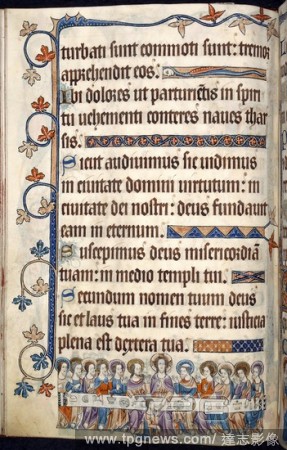 turbati sunt commoti sunt: tremor
apprehendit eos.
Ibi dolores ut parturiētis in spiri
tu uehementi conteres naues thar
sis.
Sicut audiuimus sic uidimus
in ciuitate domini uirtutum: in
ciuitate dei nostri: deus fundauit
eam in eternum.
Suscepimus deus misericordiā
tuam: in medio templi tui.
Secundum nomen tuum deus
sic et laus tua in fines terre: iusticia
plena est dextera tua.
www.tpgnews.com/ 達志影像